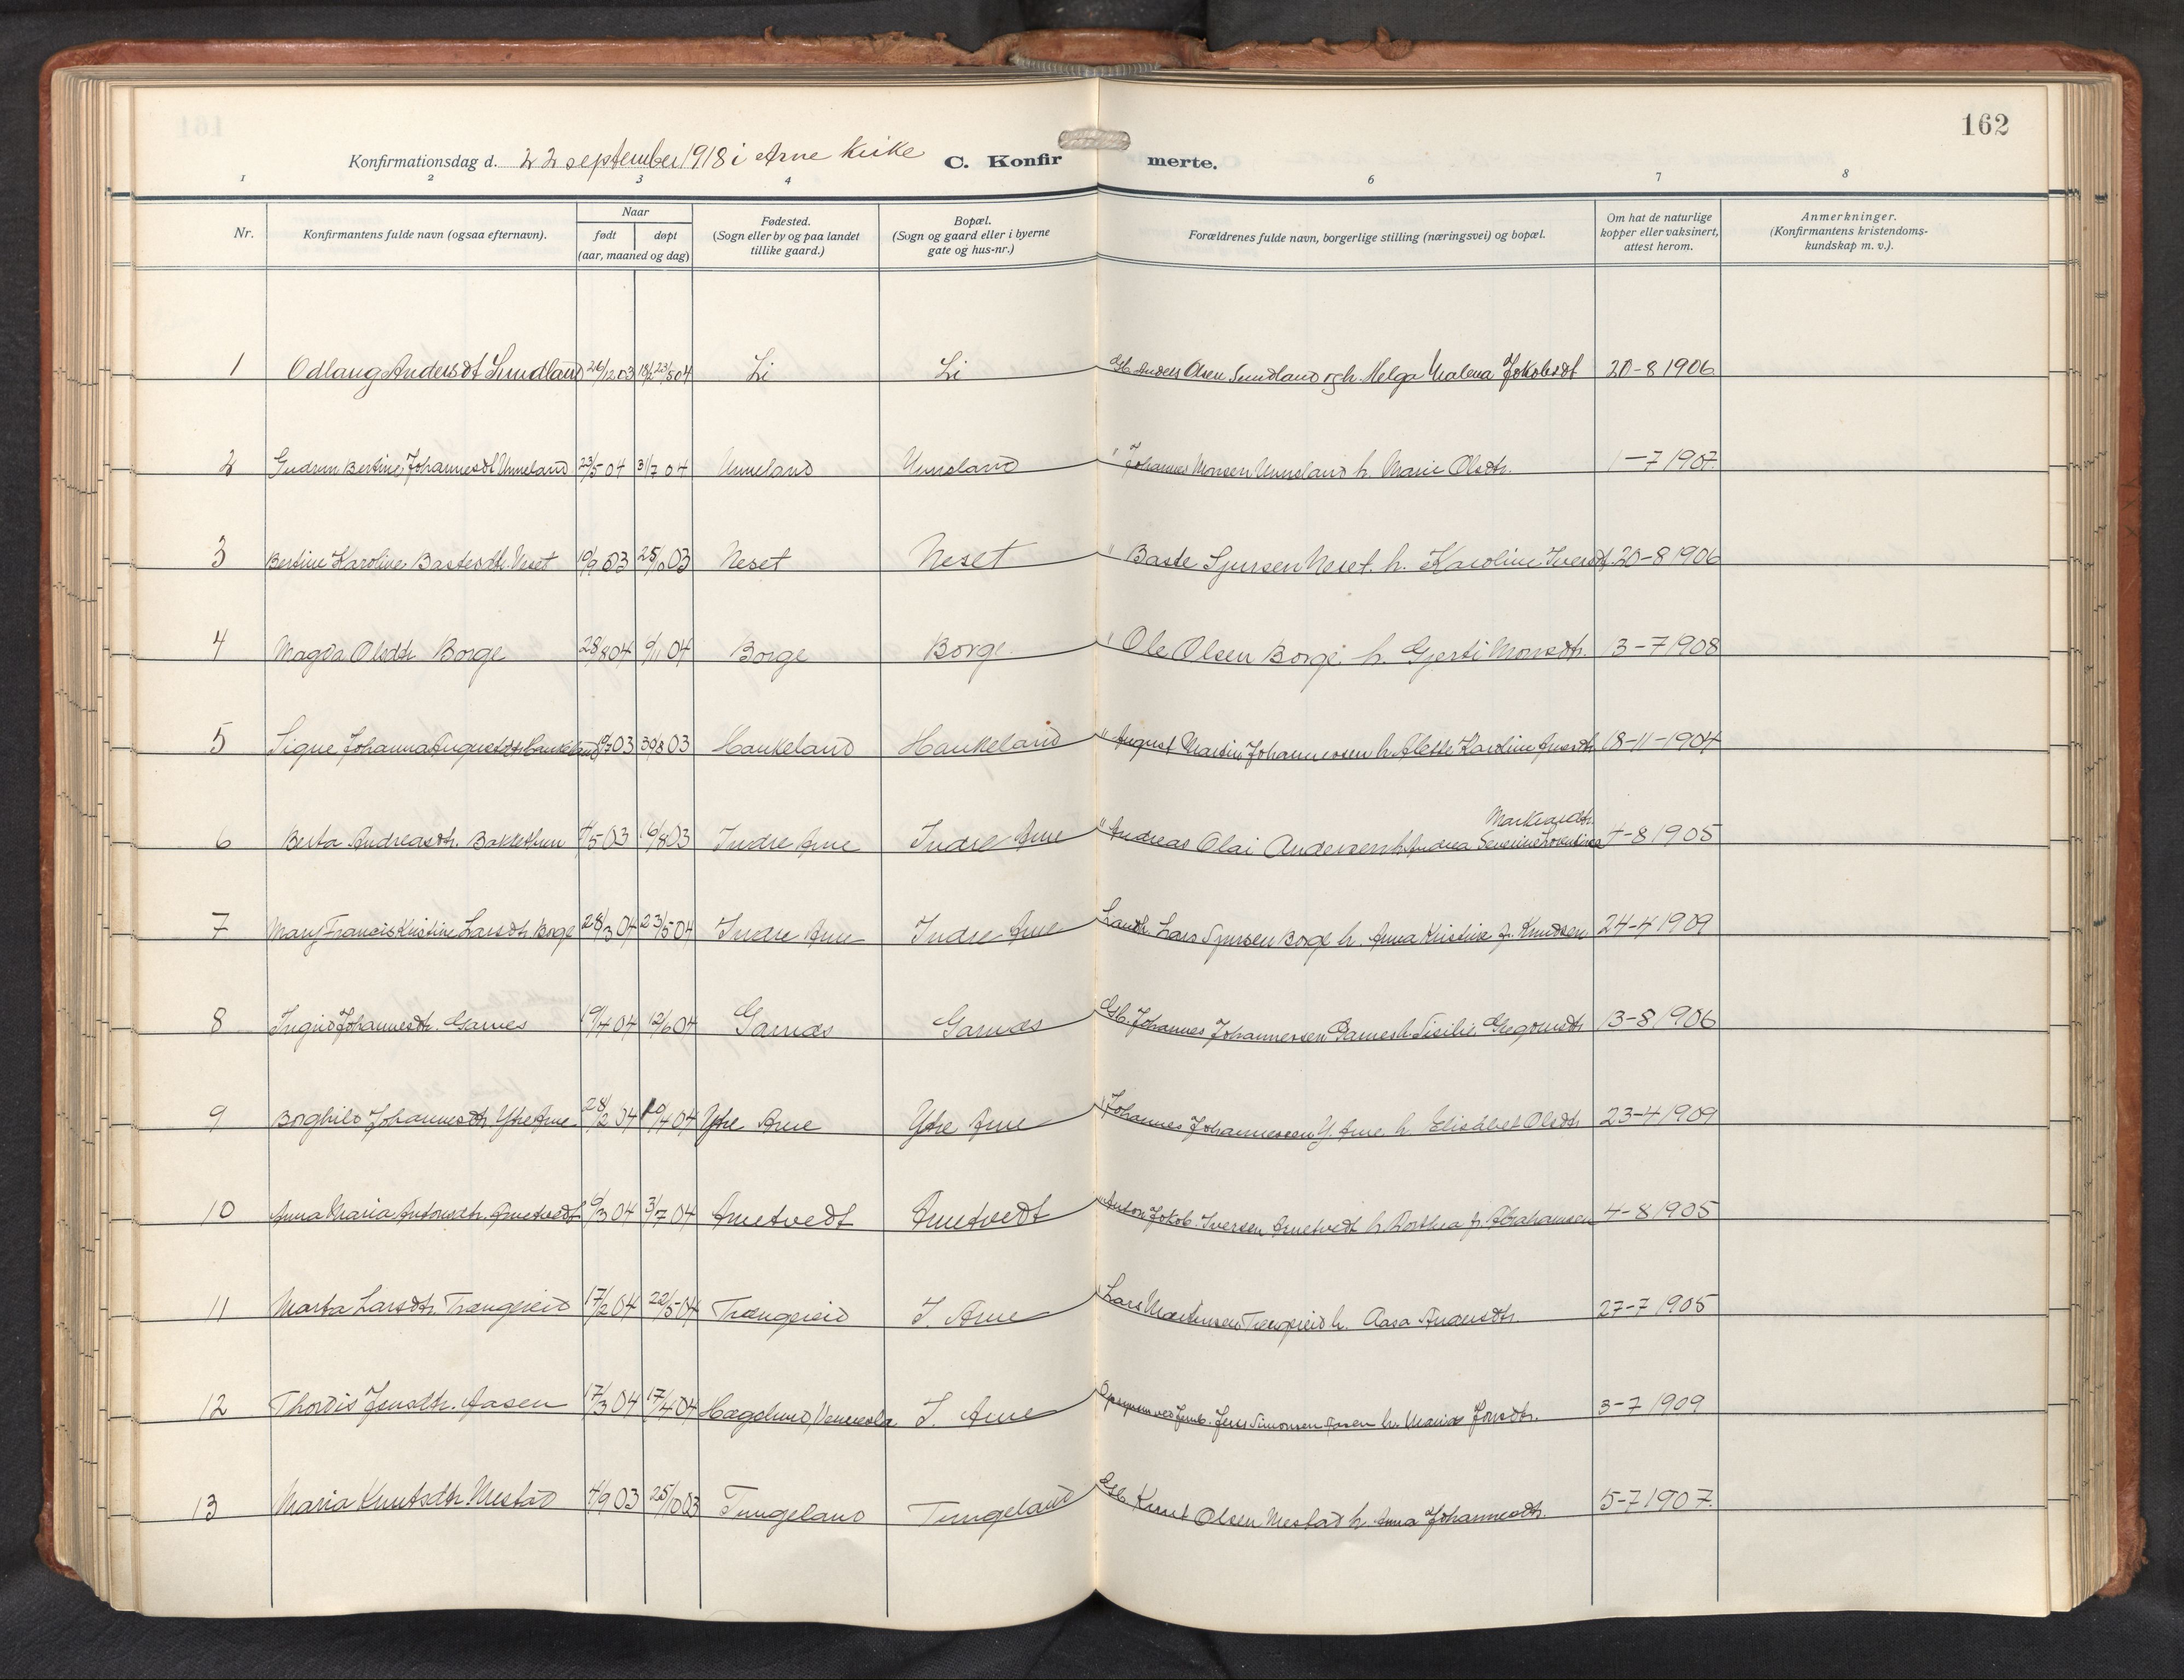 162
Konfirmationsdag d. 22 september 1918 i Arne kirke C. Konfirmerte.
1 2 3 4 6 7 8
Nr. Konfirmantens fulde navn (ogsaa efternavn). Naar født døpt (aar, maaned og dag) Fødested. (Sogn eller by og paa landet tillike gaard.) Bopæl. (Sogn og gaard eller i byerne gate og hus-nr.) Forældrenes fulde navn, borgerlige stilling (næringsvei) og bopæl. Om hat de naturlige kopper eller vaksinert, attest herom. Anmerkninger. (Konfirmantens kristendomskundskap m. v.).
1 Odlaug Andersdt Lundland 26/12 03 23/5 04 Li Li Gb. Anders Olsen Lundland og h. Helga Malena Jakobsdt 20-8 1906
2 Gudrun Bertine Johannesdt Unneland 23/5 04 31/7 04 Unneland Unneland " Johannes Monsen Unneland h. Marie Olsdtr. 1-7 1907.
3 Bertine Karoline Bastesdtr. Neset 19/9 03 25/10 03 Neset Neset " Baste Sjursen Neset. h. Karoline Iversdt. 20-8 1906
4 Magda Olsdtr Borge 28/8 04 9/11 04 Borge Borge. " Ole Olsen Borge. h. Gjerti Monsdtr. 13-7 1908
5 Signe Johanna Augustdtr Haukeland 03 30/8 03 Haukeland Haukeland " August Martin Johannessen h. Alette Karoline 18-11-1904
6 Berta Andreasdtr. Bakketun 4/5 03 16/8 03 Indre Arne Indre Arne " Andreas Olai Andersen h. Andrea Severine Markusdtr. 4-8 1905
7 Mary Francis Kristine Larsdtr Borge 28/3 04 23/5 04 Indre Arne Indre Arne Landh. Lars Sjursen Borge h. Anna Kristine f. Knudsen. 24-4 1909
8 Ingrid Johannesdtr. Garnes 19/4 04 12/6 04 Garnæs Garnæs Gb. Johannes Johannessen Garnes h. Sisilie Gregoriusdtr 13-8 1906
9 Borghild Johannesdtr Ytre Arne. 28/2 04 10/4 04 Ytre Arne Ytre Arne " Johannes Johannessen Y. Arne. h. Elisabet Olsdtr 23-4 1909
10 Anna Maria Antonsdtr. Arnetvedt 6/3 04 3/7 04 Arnetvedt Arnetvedt " Anton Jakob Iversen Arnetvedt h. Dorthea f. Abrahamsen 4-8 1905
11 Marta Larsdtr. Trængereid 17/2 04 22/5 04 Trængereid I. Arne Lars Martinsen Trengereid h. Aasa Andersdtr. 27-7 1905
12 Thordis Jensdtr. Aasen 17/3 04 17/4 04 Hægelund, Vennesla. I. Arne Jens Simonsen Aasen h. Maria Jonsdtr. 3-7 1909
13 Maria Knutsdtr. Mestad 4/9 03 25/10 03 Tungeland Tungeland Gb Knut Olsen Mestad h. Anna Johannesdtr. 5-7 1907.